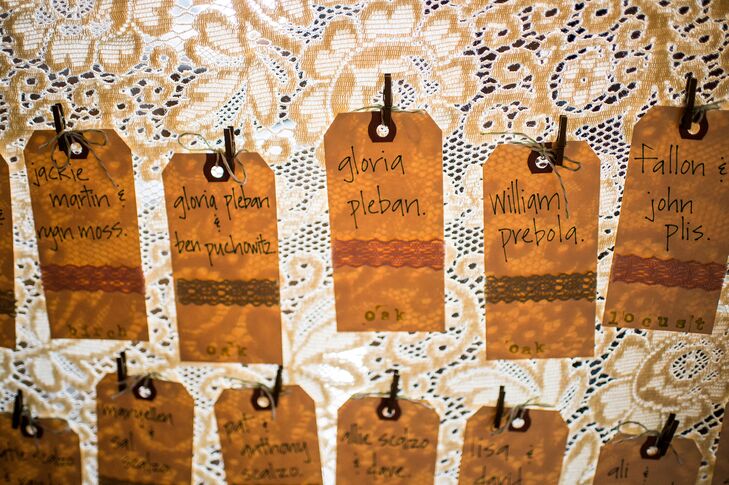 jackie
martin &
ryan moss.
birch
gloria pleban
&
ben puchowitz
oak
gloria
pleban.
oak
william
prebola.
oak
fallon &
john
plis.
locust
maryellen
&
sal
scalzo.
pat &
anthony
scalzo.
allie scalzo
&
dave.
lisa
&
david
ali &